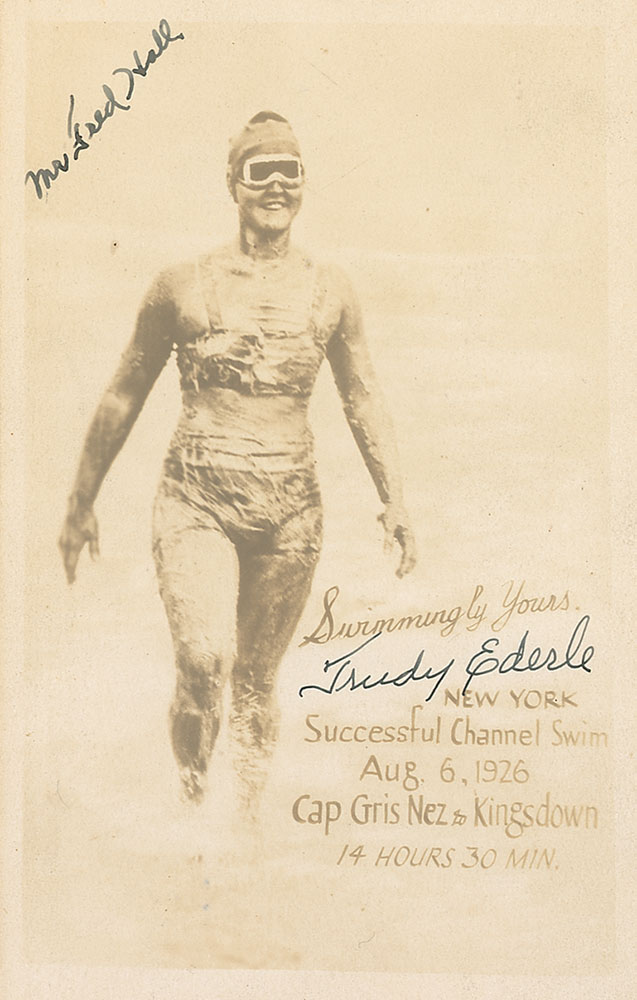 Mr Fred Hall
Swimmingly Yours.
Trudy Ederle
NEW YORK
Successful Channel Swim
Aug. 6, 1926
Cap Gris Nez to Kingsdown
14 HOURS 30 MIN.